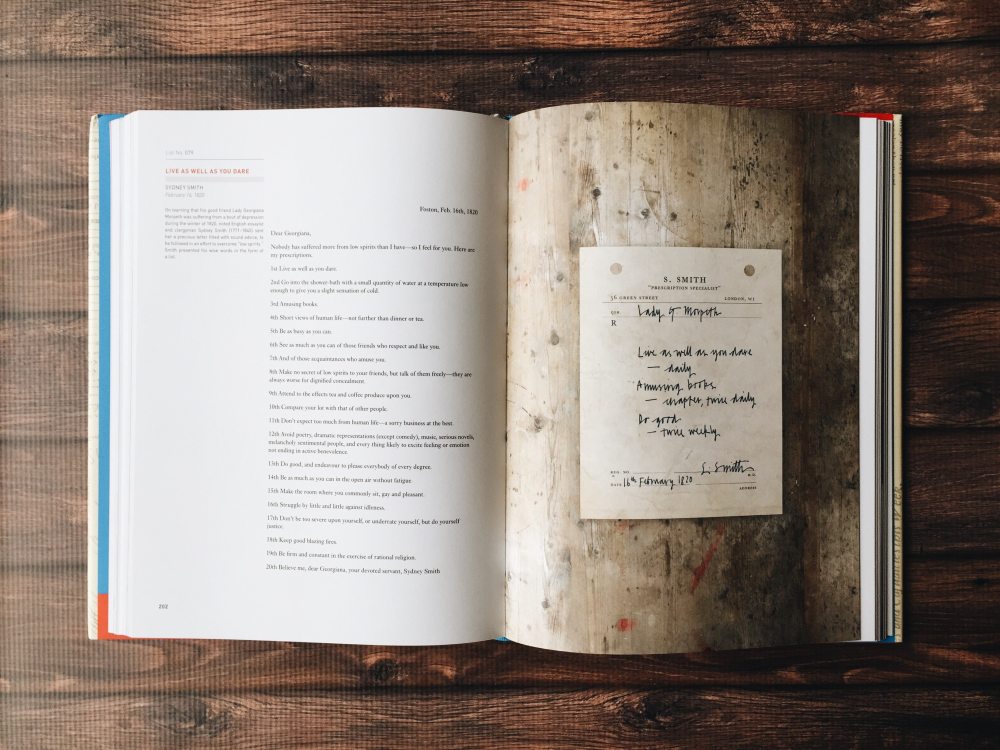 List No. 074
LIVE AS WELL AS YOU DARE
SYDNEY SMITH
February 16, 1820
On learning that his good friend Lady Georgiana
Morpeth was suffering from a bout of depression
during the winter of 1820, noted English essayist
and clergyman Sydney Smith (1771–1845) sent
her a precious letter filled with sound advice, to
be followed in an effort to overcome "low spirits."
Smith presented his wise words in the form of
a list.
Foston, Feb. 16th, 1820
Dear Georgiana,
Nobody has suffered more from low spirits than I have—so I feel for you. Here are
my prescriptions.
1st Live as well as you dare.
2nd Go into the shower-bath with a small quantity of water at a temperature low
enough to give you a slight sensation of cold.
3rd Amusing books.
4th Short views of human life—not further than dinner or tea.
5th Be as busy as you can.
6th See as much as you can of those friends who respect and like you.
7th And of those acquaintances who amuse you.
8th Make no secret of low spirits to your friends, but talk of them freely—they are
always worse for dignified concealment.
9th Attend to the effects tea and coffee produce upon you.
10th Compare your lot with that of other people.
11th Don't expect too much from human life—a sorry business at the best.
12th Avoid poetry, dramatic representations (except comedy), music, serious novels,
melancholy sentimental people, and every thing likely to excite feeling or emotion
not ending in active benevolence.
13th Do good, and endeavour to please everybody of every degree.
14th Be as much as you can in the open air without fatigue.
15th Make the room where you commonly sit, gay and pleasant.
16th Struggle by little and little against idleness.
17th Don't be too severe upon yourself, or underrate yourself, but do yourself
justice.
18th Keep good blazing fires.
19th Be firm and constant in the exercise of rational religion.
20th Believe me, dear Georgiana, your devoted servant, Sydney Smith
202
S. SMITH
"PRESCRIPTION SPECIALIST"
56 GREEN STREET LONDON, W1
FOR Lady G Morpeth
R
Live as well as you dare
— daily
Amusing books
— chapter, twice daily
Do good
— twice weekly
REG. NO. S. Smith
M.D.
DATE 16th February 1820
ADDRESS